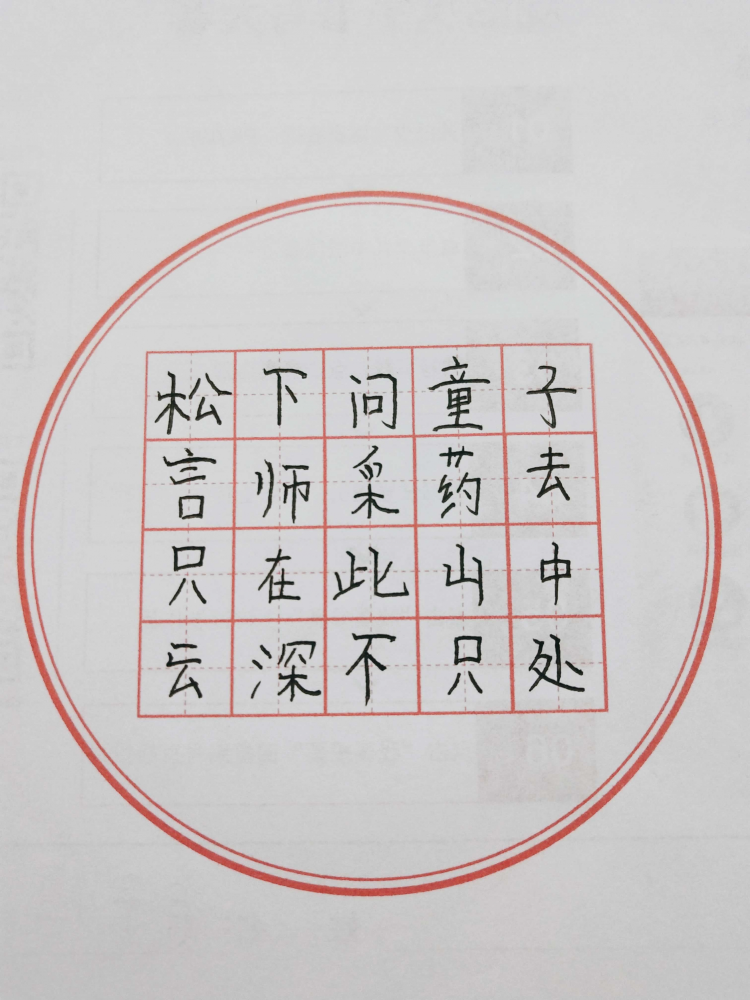 松下问童子
言师采药去
只在此山中
云深不只处